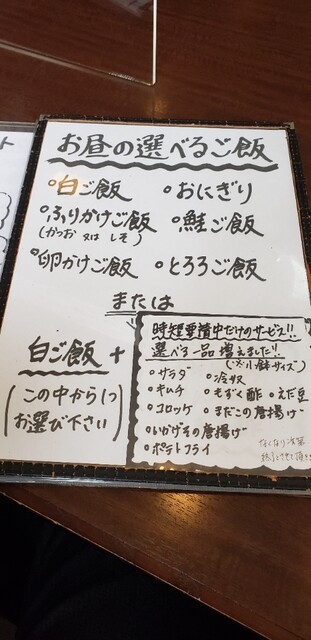 お昼の選べるご飯
○白ご飯
○おにぎり
○ふりかけご飯
(かつお 又は しそ)
○鮭ご飯
○卵かけご飯
○とろろご飯
または
白ご飯+
(この中から1つ
お選び下さい)
時短要請中だけのサービス!!
選べる一品増えました!!
(※小鉢サイズ)
・サラダ
・冷奴
・キムチ
・もずく酢
・えだ豆
・コロッケ
・まだこの唐揚げ
・いかげその唐揚げ
・ポテトフライ
なくなり次第